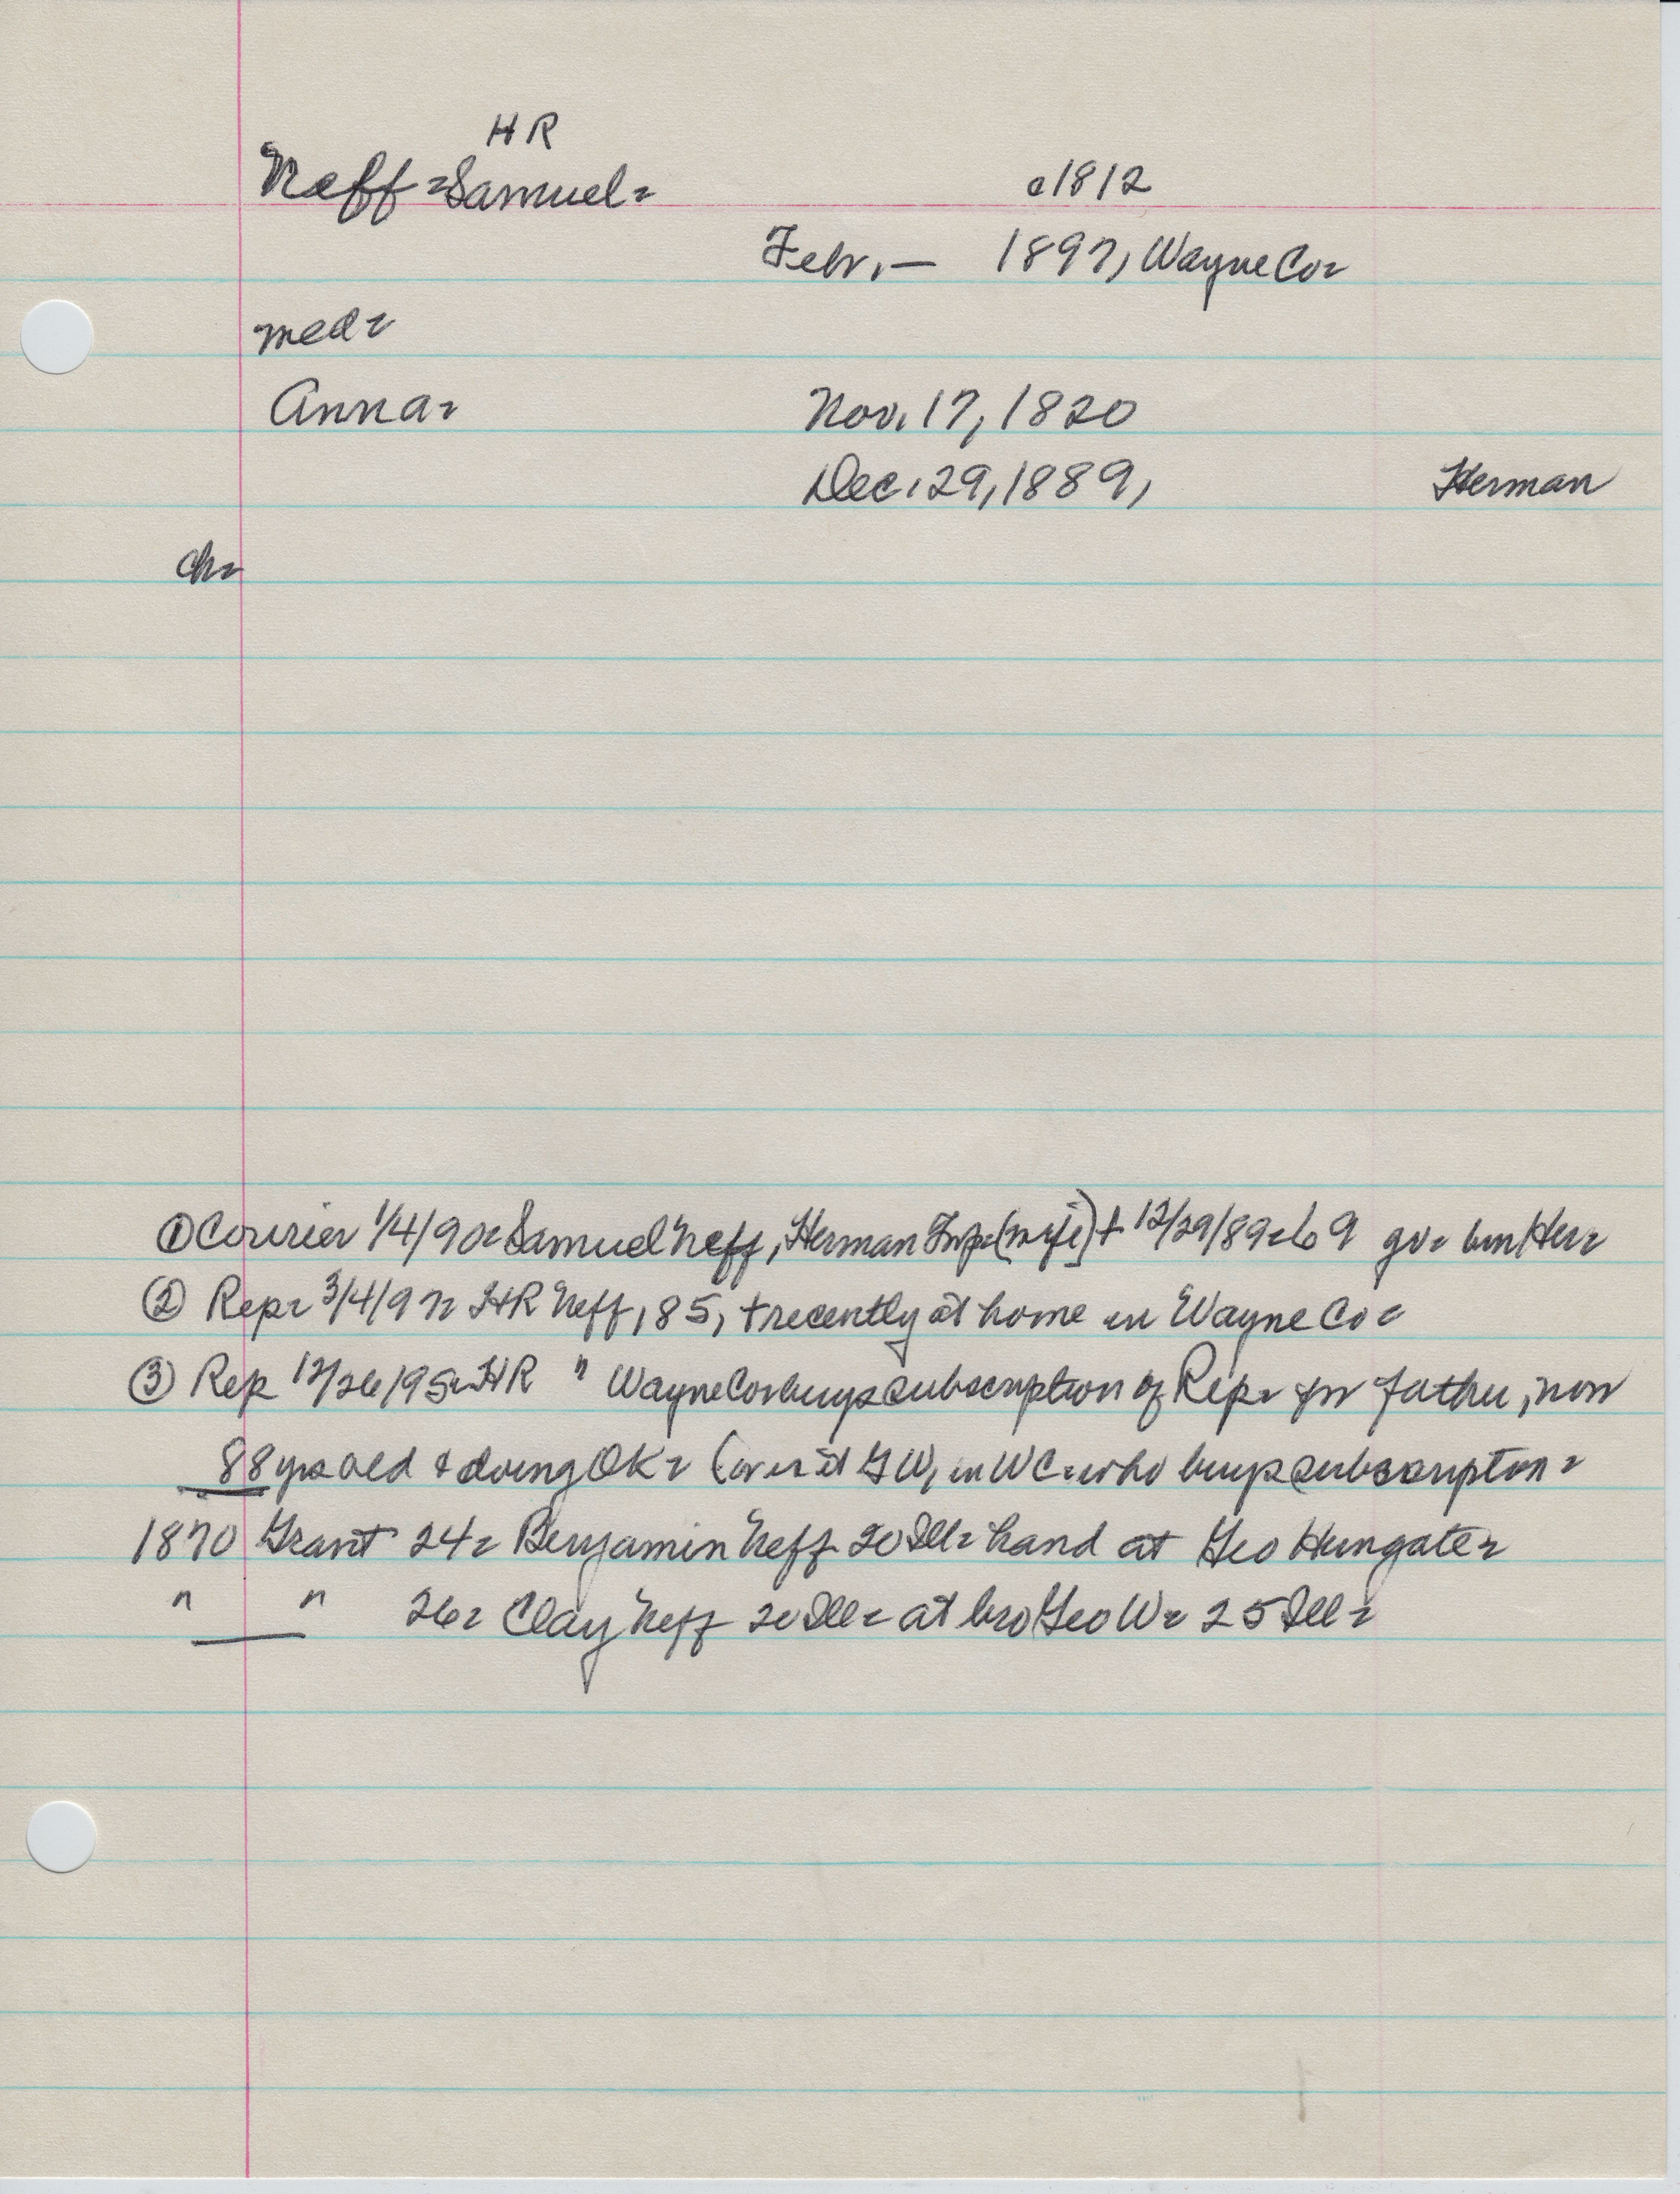 HR
Neff - Samuel - c1812
Febr. — 1897, Wayne Co -
med -
Anna - Nov. 17, 1820
Dec. 29, 1889, Herman
ch -
① Courier 1/4/90 - Samuel Neff, Herman Twp - (wife) † 12/29/89 - 69 bur Her -
② Rep - 3/4/97 - HR Neff, 85, † recently at home in Wayne Co -
③ Rep 12/26/95 - HR " Wayne Co - buys subscription of Rep - for father, now
88 yrs old & doing OK - (or is it GW, in WC - who buys subscription -
1870 Grant 24 - Benjamin Neff 20 Ill - hand at Geo Hungate -
" " 26 - Clay Neff 20 Ill - at bro Geo W - 25 Ill -